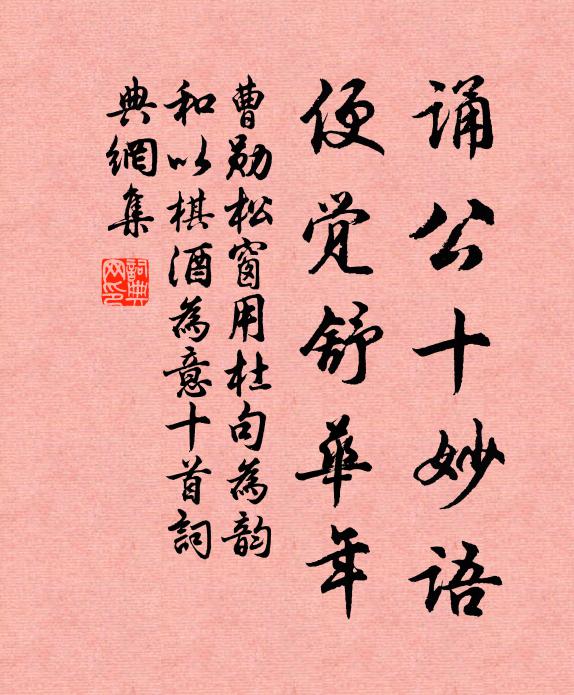 诵公十妙语
便觉舒华年
曹勋松窗用杜句為韵
和以棋酒為意十首詞
典網集
詞典网印